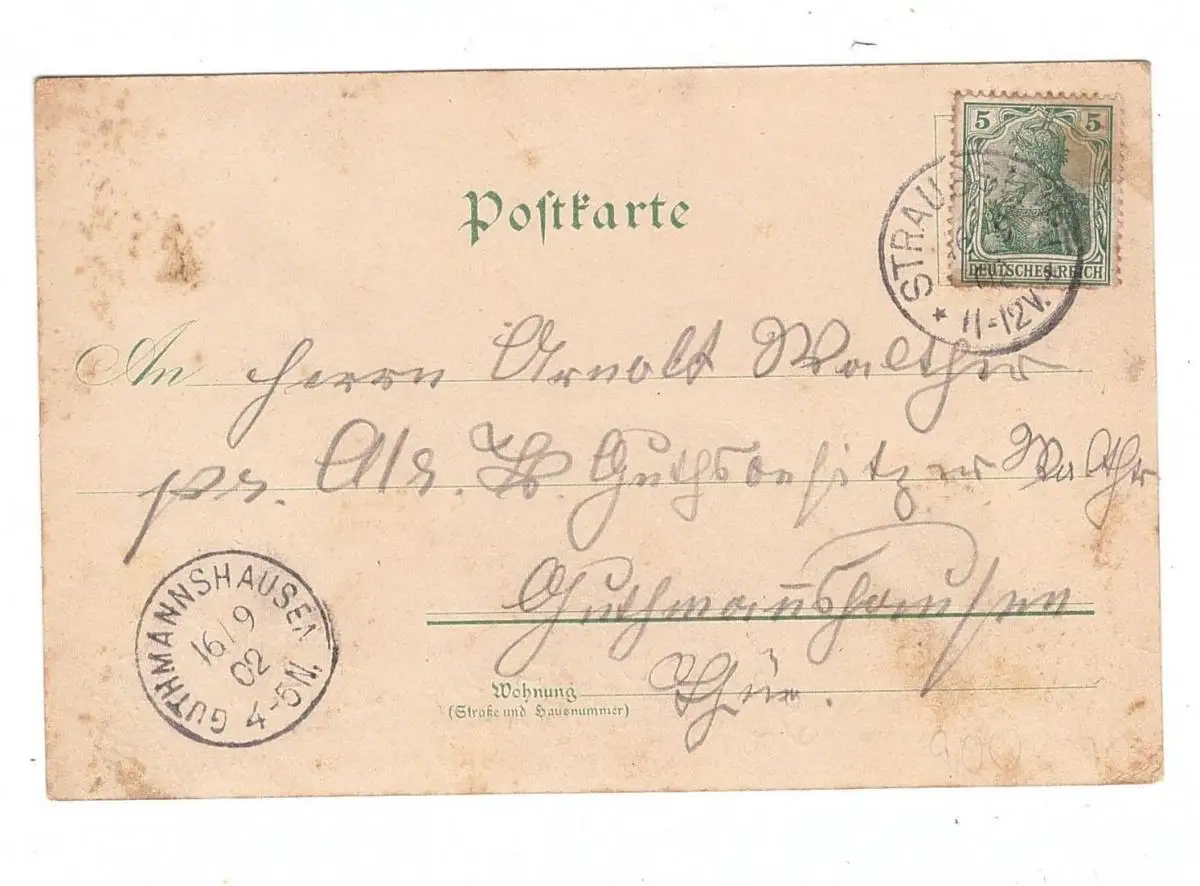 Postkarte
5 5
DEUTSCHES REICH
* STRAUS
11-12V.
An Herrn Arnolt Walther
pr. Adr. Guthsbesitzer Walthr
Guthmannshausen
Thür.
Wohnung
(Straße und Hausnummer)
GUTHMANNSHAUSEN
16/9
02
4-5N.